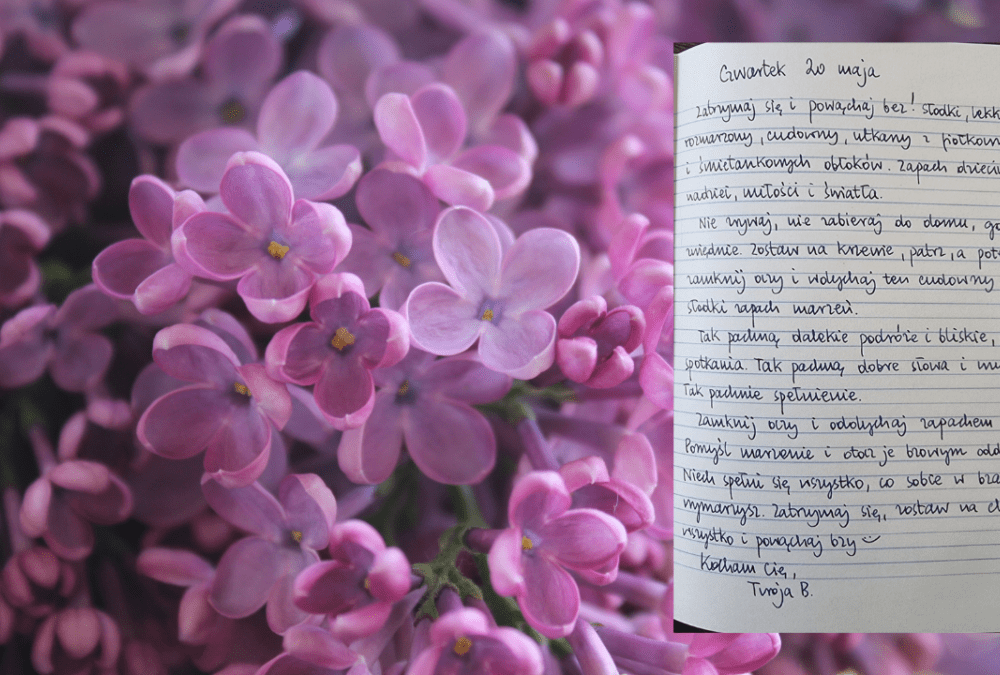 Czwartek 20 maja
Zatrzymaj się i powąchaj bez! Słodki, lekk
rozmarzony, cudowny, utkany z fiołkow
i śmietankowych obłoków. Zapach dzieci
nadziei, miłości i światła.
Nie zrywaj, nie zabieraj do domu, g
zwiędnie. Zostaw na krzewie, patrz, a pot
zamknij oczy i wdychaj ten cudowny
słodki zapach marzeń.
Tak pachną dalekie podróże i bliskie,
spotkania. Tak pachną dobre słowa i mu
Tak pachnie spełnienie.
Zamknij oczy i oddychaj zapachem
Pomyśl marzenie i otocz je bzowym odd
Niech spełni się wszystko, co sobie w bza
wymarzysz. Zatrzymaj się, zostaw na ch
wszystko i powąchaj bzy
Kocham Cię,
Twoja B.